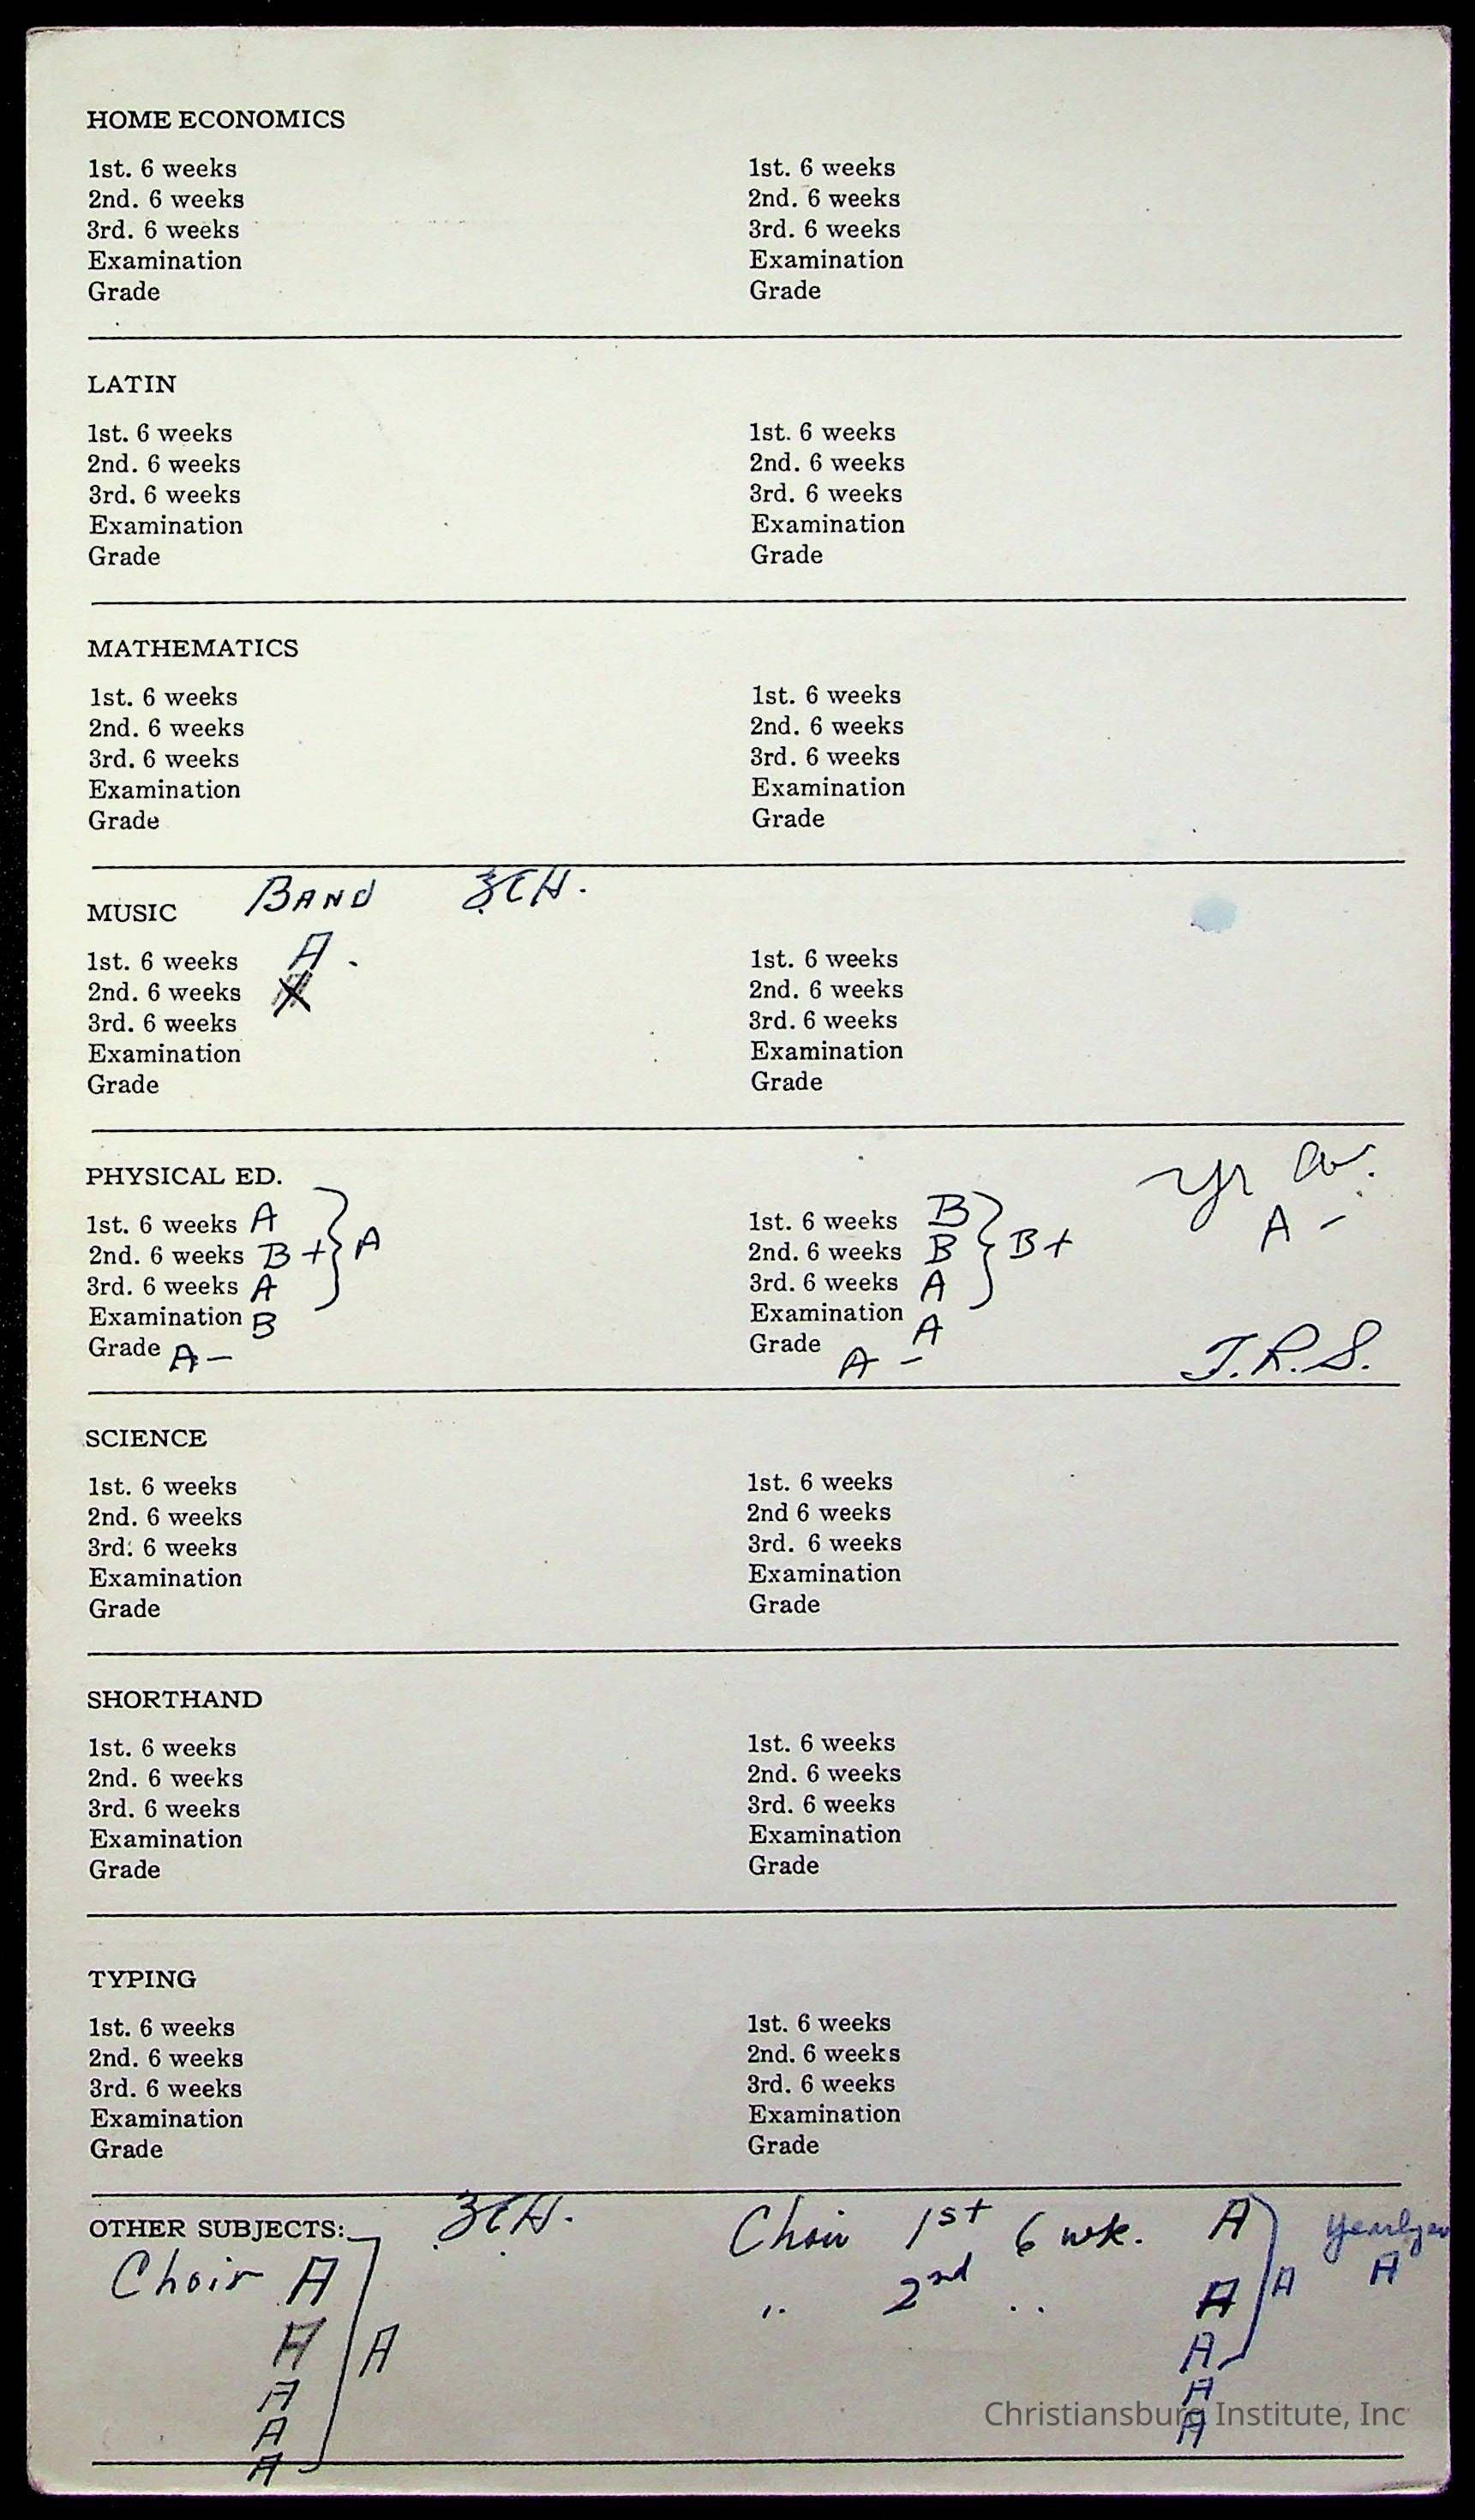 HOME ECONOMICS
1st. 6 weeks 1st. 6 weeks
2nd. 6 weeks 2nd. 6 weeks
3rd. 6 weeks 3rd. 6 weeks
Examination Examination
Grade Grade
LATIN
1st. 6 weeks 1st. 6 weeks
2nd. 6 weeks 2nd. 6 weeks
3rd. 6 weeks 3rd. 6 weeks
Examination Examination
Grade Grade
MATHEMATICS
1st. 6 weeks 1st. 6 weeks
2nd. 6 weeks 2nd. 6 weeks
3rd. 6 weeks 3rd. 6 weeks
Examination Examination
Grade Grade
MUSIC BAND
1st. 6 weeks A. 1st. 6 weeks
2nd. 6 weeks 2nd. 6 weeks
3rd. 6 weeks 3rd. 6 weeks
Examination Examination
Grade Grade
PHYSICAL ED. Yr Av.
1st. 6 weeks A 1st. 6 weeks B A -
2nd. 6 weeks B + A 2nd. 6 weeks B B+
3rd. 6 weeks A 3rd. 6 weeks A
Examination B Examination A
Grade A- Grade A - J.R.S.
SCIENCE
1st. 6 weeks 1st. 6 weeks
2nd. 6 weeks 2nd 6 weeks
3rd. 6 weeks 3rd. 6 weeks
Examination Examination
Grade Grade
SHORTHAND
1st. 6 weeks 1st. 6 weeks
2nd. 6 weeks 2nd. 6 weeks
3rd. 6 weeks 3rd. 6 weeks
Examination Examination
Grade Grade
TYPING
1st. 6 weeks 1st. 6 weeks
2nd. 6 weeks 2nd. 6 weeks
3rd. 6 weeks 3rd. 6 weeks
Examination Examination
Grade Grade
OTHER SUBJECTS: Choir 1st 6 wk. A
Choir A " 2nd " A A A
A A A
A A
A A
A
Christiansburg Institute, Inc